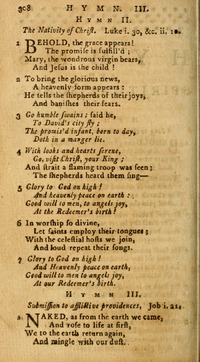 308 HYMN. III.
HYMN II.
The Nativity of Christ. Luke i. 30, &c. ii. 10.
1 BEHOLD, the grace appears!
The promise is fulfill'd;
Mary, the wondrous virgin bears,
And Jesus is the child!
2 To bring the glorious news,
A heavenly form appears:
He tells the shepherds of their joys,
And banishes their fears.
3 Go humble swains; said he,
To David's city fly;
The promis'd infant, born to day,
Doth in a manger lie.
4 With looks and hearts serene,
Go, visit Christ, your King;
And strait a flaming troop was seen;
The shepherds heard them sing—
5 Glory to God on high!
And heavenly peace on earth:
Good will to men, to angels joy,
At the Redeemer's birth!
6 In worship so divine,
Let saints employ their tongues;
With the celestial hosts we join,
And loud repeat their songs.
7 Glory to God on high!
And Heavenly peace on earth,
Good will to men, to angels joy,
At our Redeemer's birth.
HYMN III.
Submission to afflictive providences, Job i. 21.
NAKED, as from the earth we came,
And rose to life at first,
We to the earth return again,
And mingle with our dust.